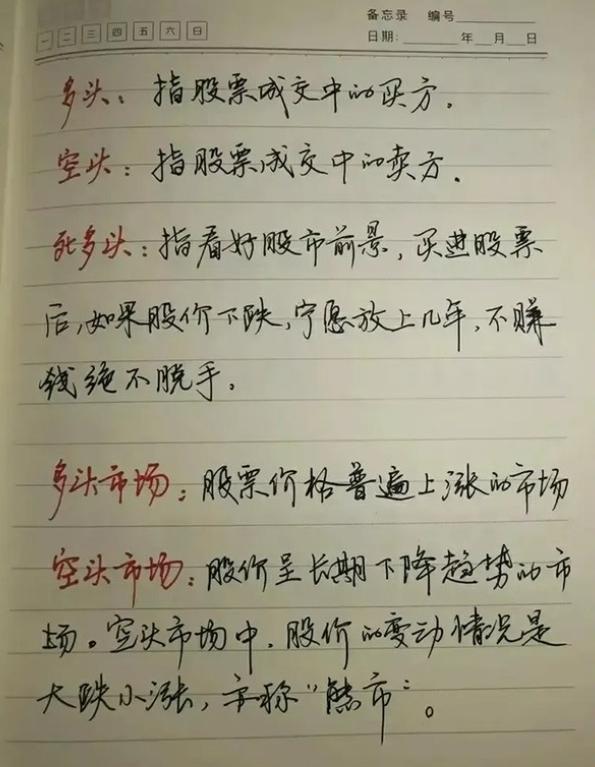 备忘录 编号
一 二 三 四 五 六 日
日期: 年 月 日
多头：指股票成交中的买方.
空头：指股票成交中的卖方.
死多头：指看好股市前景,买进股票
后,如果股价下跌,宁愿放上几年,不赚
钱绝不脱手。
多头市场：股票价格普遍上涨的市场
空头市场：股价呈长期下降趋势的市
场。空头市场中,股价的变动情况是
大跌小涨,亦称“熊市”。